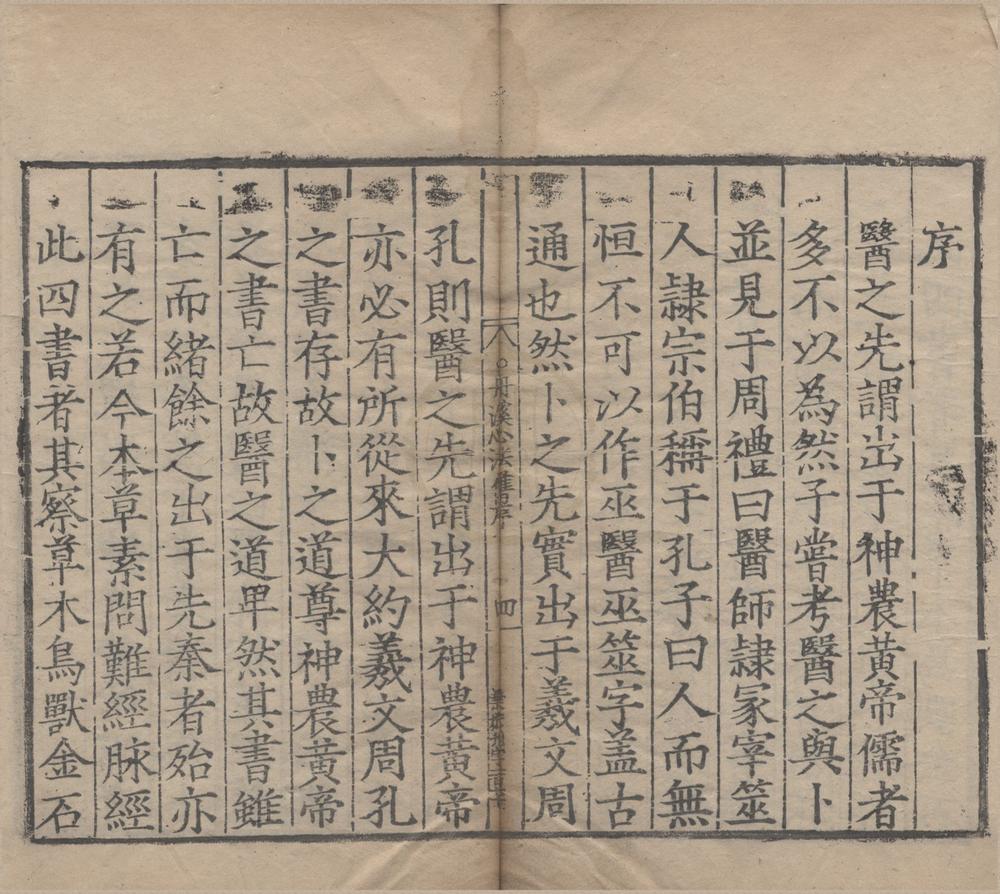 序
醫之先謂出于神農黃帝儒者
多不以為然予嘗考醫之與卜
並見于周禮曰醫師隸冢宰筮
人隸宗伯稱于孔子曰人而無
恒不可以作巫醫巫筮字盖古
通也然卜之先實出于羲文周
丹溪心法
序
四
孔則醫之先謂出于神農黃帝
亦必有所從來大約羲文周孔
之書存故卜之道尊神農黃帝
之書亡故醫之道卑然其書雖
亡而緒餘之出于先秦者殆亦
有之若今本草素問難經脉經
此四書者其察草木鳥獸金石